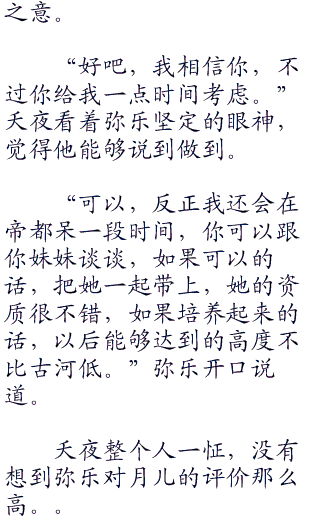 之意。
“好吧，我相信你，不
过你给我一点时间考虑。”
天夜看着弥乐坚定的眼神，
觉得他能够说到做到。
“可以，反正我还会在
帝都呆一段时间，你可以跟
你妹妹谈谈，如果可以的
话，把她一起带上，她的资
质很不错，如果培养起来的
话，以后能够达到的高度不
比古河低。”弥乐开口说
道。
天夜整个人一怔，没有
想到弥乐对月儿的评价那么
高。。